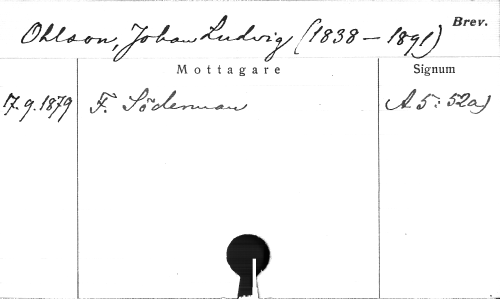 Brev.
Ohlson, Johan Ludvig (1838 – 1891)
Mottagare Signum
17.9.1879 F. Söderman A 5: 52a)